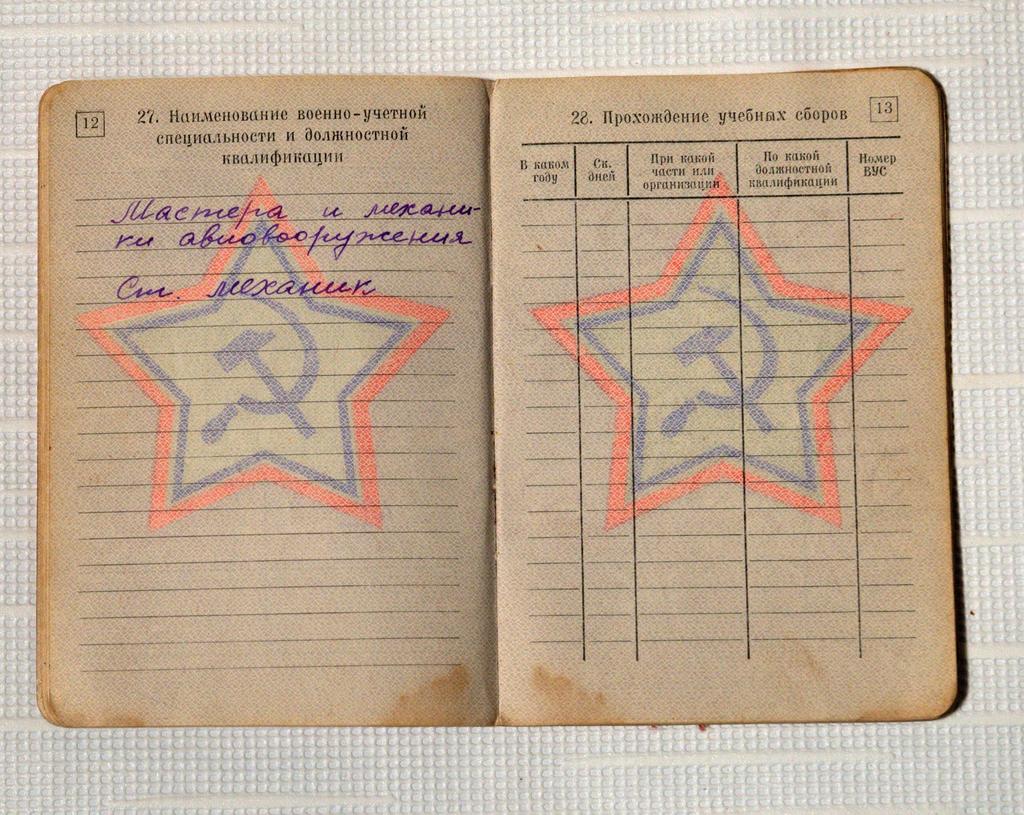 12
27. Наименование военно-учетной
специальности и должностной
квалификации
Мастера и механи-
ки авиовооружения
Ст. механик
13
28. Прохождение учебных сборов
В каком
году
Ск.
дней
При какой
части или
организации
По какой
должностной
квалификации
Номер
ВУС